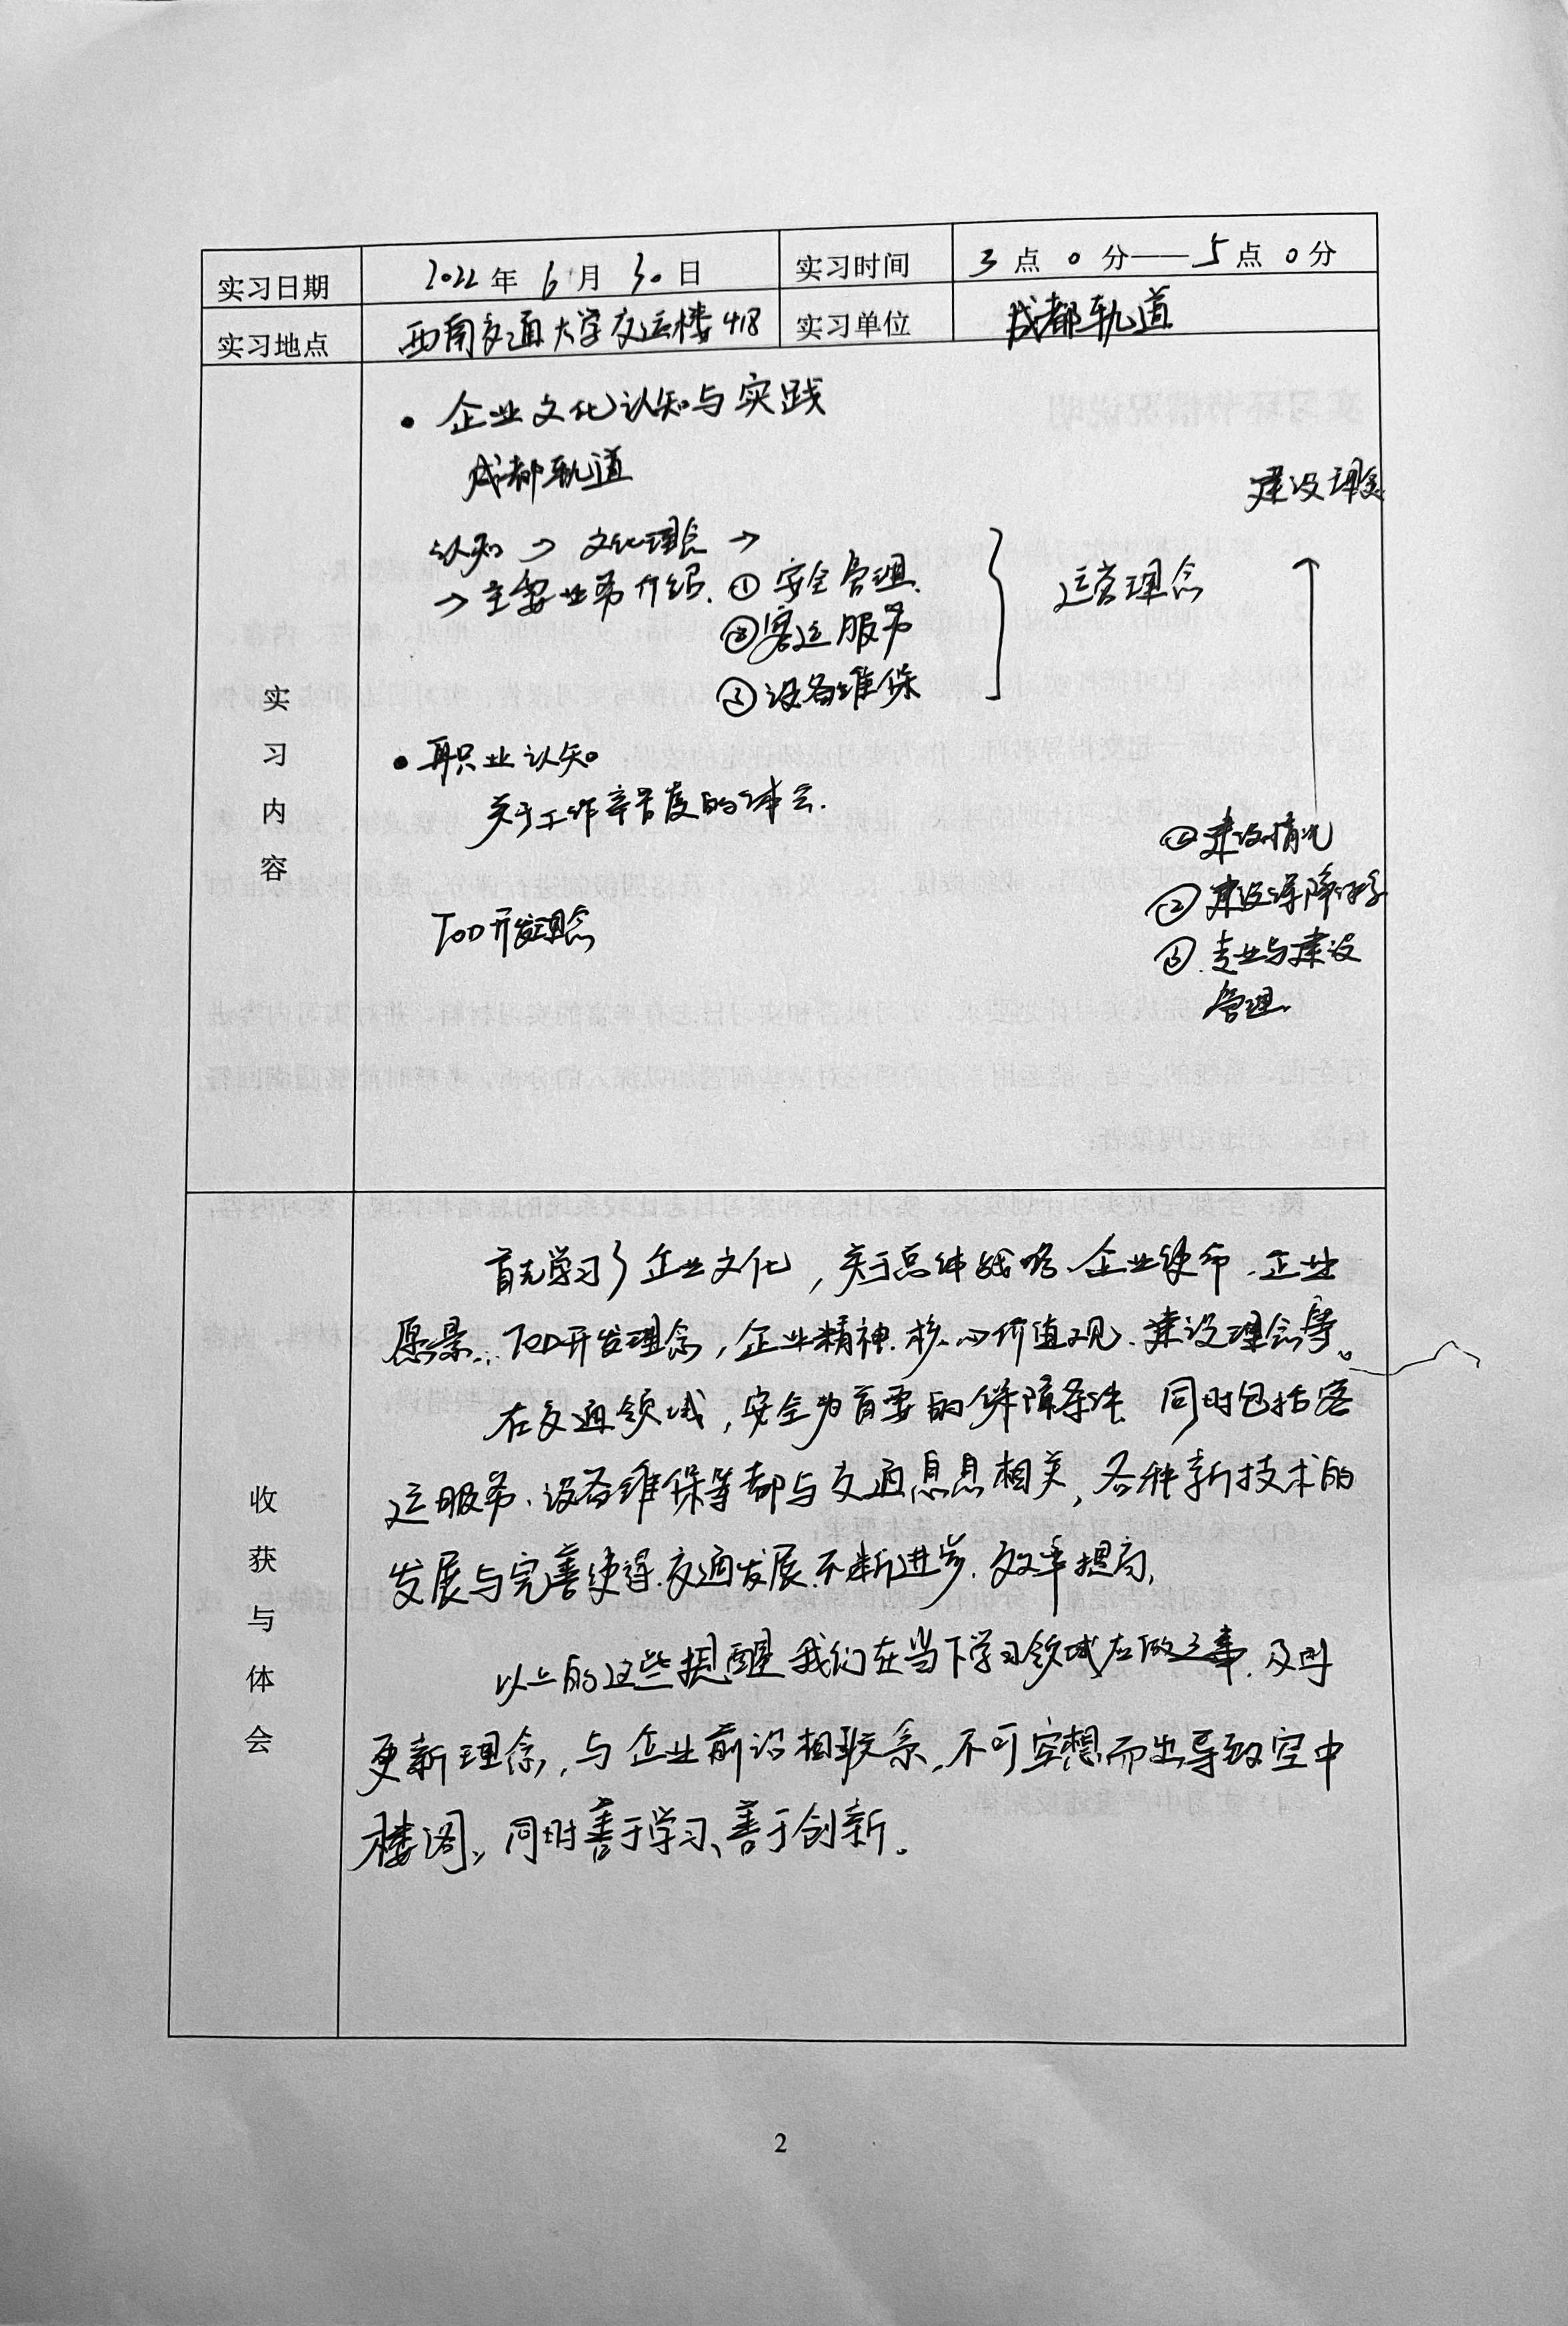 实习日期 2022年 6月 30日 实习时间 3点 0分——5点 0分
实习地点 西南交通大学交运楼418 实习单位 成都轨道
实习内容
• 企业文化认知与实践
成都轨道
建设理念
认知 → 文化理念 →
→ 主要业务介绍. ① 安全管理.
② 客运服务
③ 设备维保
运营理念
• 职业认知
关于工作辛苦度的体会.
① 建设情况
② 建设保障体系
③ 专业与建设
管理.
TOD开发理念
收获与体会
首先学习了企业文化,关于总体战略、企业使命、企业
愿景、TOD开发理念,企业精神、核心价值观、建设理念等。
在交通领域,安全为首要的保障条件 同时包括客
运服务、设备维保等都与交通息息相关,各种新技术的
发展与完善使得交通发展不断进步,效率提高,
以上的这些提醒我们在当下学习领域应做之事,及时
更新理念,与企业前沿相联系,不可空想而出导致空中
楼阁,同时善于学习、善于创新。
2